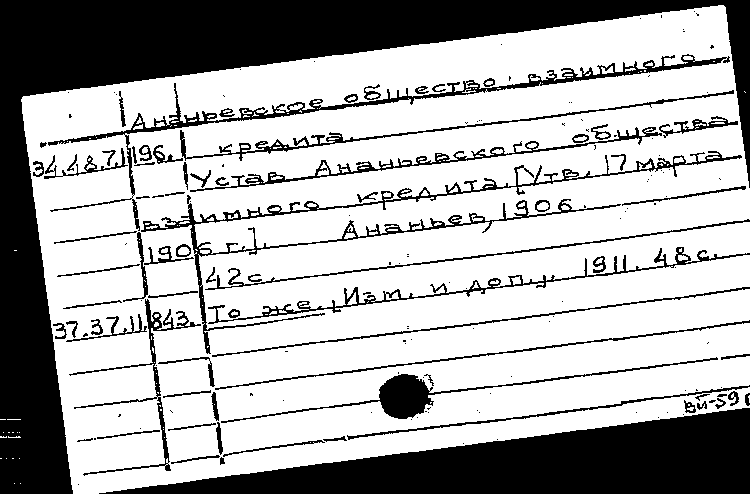 Ананьевское общество взаимного
кредита.
34.48.7.1196.
Устав Ананьевского общества
взаимного кредита. [Утв. 17 марта
1906 г.]. Ананьев, 1906.
42 с.
37.37.11.843. То же. Изм. и доп., 1911. 48 с.